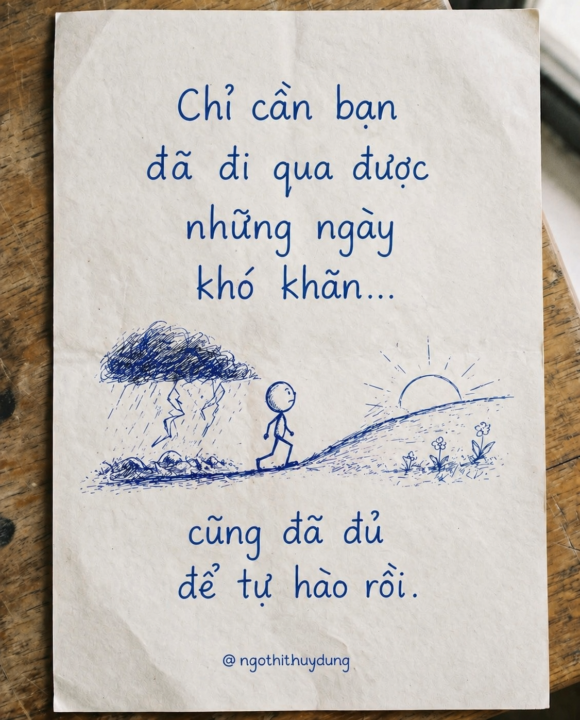 Chỉ cần bạn
đã đi qua được
những ngày
khó khãn...
cũng đã đủ
để tự hào rồi.
@ngothithuydung